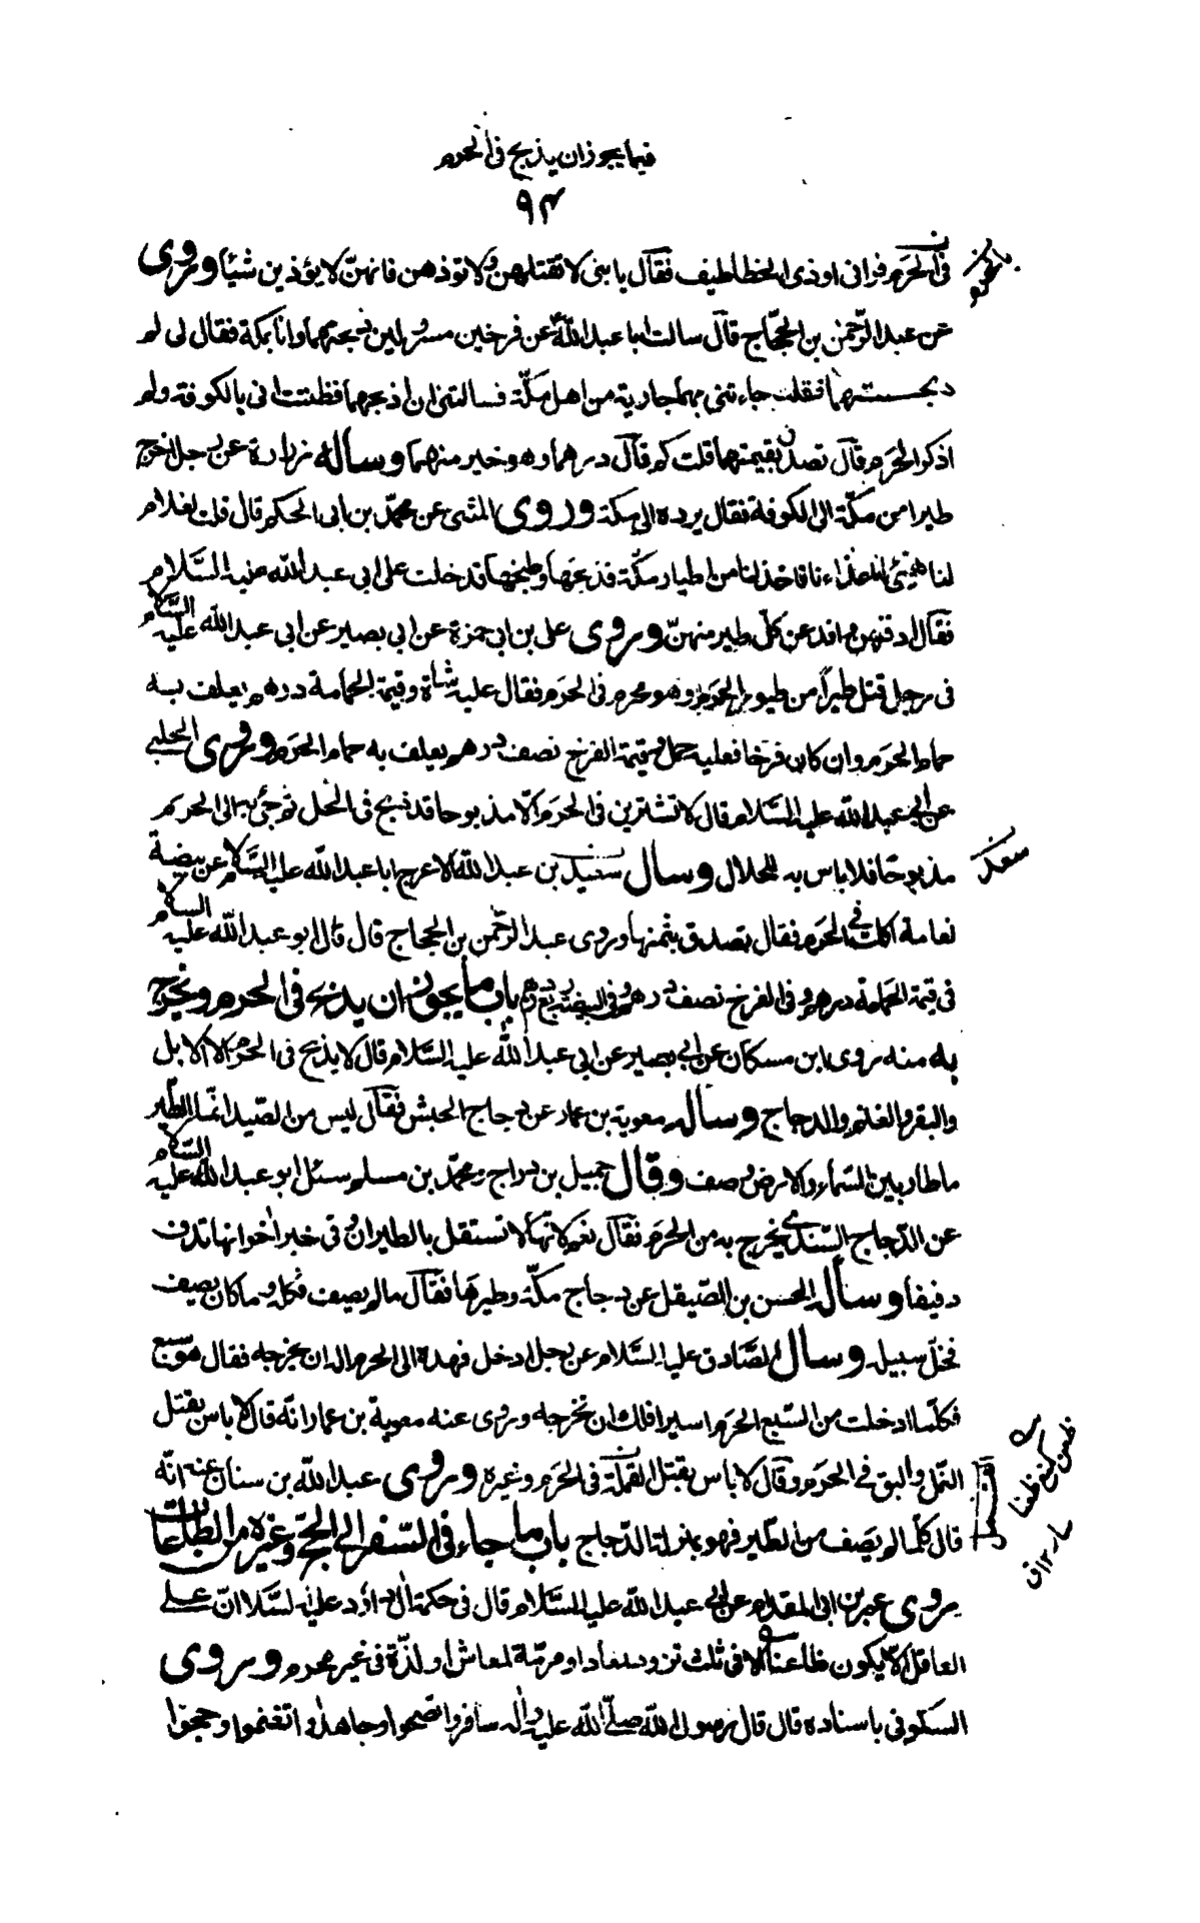 فيما يجوز ان يذبح فى الحرم
٩٣
فى الحرم فرانى اوذى الخطاطيف فقال يا بنى لا تقتلهن ولا توذهن فانهنّ لا يؤذين شيئا وروى
عن عبد الرّحمن بن الحجّاج قال سالت ابا عبد اللّه عن فرخين مسرولين ذبحتهما وانا بمكة فقال لى لم
ذبحتهما فقلت جاءتنى بهما جارية من اهل مكّة فسالتنى ان اذبحهما فظننت انى بالكوفة ولم
اذكر الحرم قال تصدق بقيمتهما قلت كم قال درهما وهو خير منهما وساله زرارة عن رجل اخرج
طيرا من مكّة الى الكوفة فقال يرده الى مكة وروى المثنى عن محمّد بن ابى الحكم قال قلت لغلام
لنا هيّئ لنا غداءنا فاخذ لنا من اطيار مكّة فذبحها وطبخها فدخلت على ابى عبد اللّه عليه السّلام
فقال ادفنهن وافد عن كلّ طير منهنّ وروى على بن ابى حمزة عن ابى بصير عن ابى عبد اللّه عليه السّلام
فى رجل قتل طيرا من طيور الحرم وهو محرم فى الحرم فقال عليه شاة وقيمة الحمامة درهم يعلف به
حمام الحرم وان كان فرخا فعليه حمل وقيمة الفرخ نصف درهم يعلف به حمام الحرم وروى الحلبى
عن ابى عبد اللّه عليه السّلام قال لا تشترين فى الحرم الّا مذبوحا قد ذبح فى الحل ثم جئ به الى الحرم
مذبوحا فلا باس به للحلال وسال سعيد بن عبد اللّه الاعرج ابا عبد اللّه عليه السّلام عن بيضة
نعامة اكلت فى الحرم فقال تصدق بثمنها وروى عبد الرّحمن بن الحجاج قال قال ابو عبد اللّه عليه السلام
فى قيمة الحمامة درهم وفى الفرخ نصف درهم وفى البيضة ربع درهم باب ما يجوز ان يذبح فى الحرم ويخرج
به منه روى ابن مسكان عن ابى بصير عن ابى عبد اللّه عليه السّلام قال لا يذبح فى الحرم الا الابل
والبقر والغنم والدجاج وساله معوية بن عمار عن دجاج الحبش فقال ليس من الصّيد انما الطّير
ما طار بين السّماء والارض وصف وقال جميل بن دراج ومحمّد بن مسلم سئل ابو عبد اللّه عليه السّلام
عن الدّجاج السّندى يخرج به من الحرم فقال نعم لانّها لا تستقل بالطيران وفى خبر اخر انها تدف
دفيفا وساله الحسن بن الصّيقل عن دجاج مكّة وطيرها فقال ما لم يصف فكله وما كان يصف
فخلّ سبيله وسال الصّادق عليه السّلام عن رجل ادخل فهده الى الحرم اله ان يخرجه فقال هو سبع
فكلّما ادخلت من السّبع الحرم اسيرا فلك ان تخرجه وروى عنه معوية بن عمار انّه قال لا باس بقتل
النمل والبق فى الحرم وقال لا باس بقتل القملة فى الحرم وغيره وروى عبد اللّه بن سنان عنه انّه
قال كلّ ما لم يصف من الطّير فهو بمنزلة الدّجاج باب ما جاء فى السّفر الى الحجّ وغيره من الطّاعات
روى عمرو بن ابى المقدام عن ابى عبد اللّه عليه السّلام قال فى حكمة ال داود عليه السّلام انّ على
العاقل الّا يكون ظاعنا الا فى ثلث تزود لمعاد او مرمّة لمعاش او لذّة فى غير محرم وروى
السكونى باسناده قال قال رسول اللّه صلّى اللّه عليه واله سافروا تصحوا وجاهدوا تغنموا وحجوا
سعد